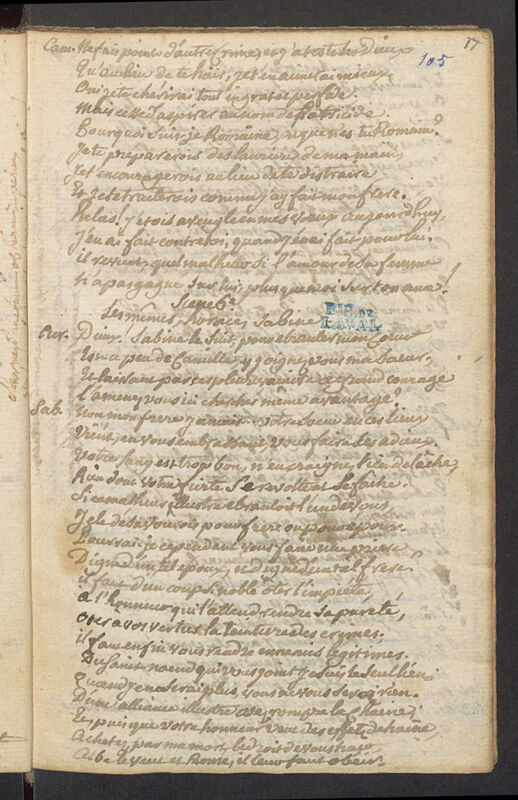 17
105
Cam. Ne fais point d'autre crime, et j'atteste les Dieux
Qu'au lieu de te hair, je t'en aimerai mieux.
Oui je te cherirai tout ingrat et perfide.
Mais cesse d'aspirer au nom de fratricide
Pourquoi suis-je Romaine, ou que n'es tu Romain?
Je te preparerois des lauriers de ma main,
Je t'encouragerois au lieu de te distraire
Et je te traiterois comme j'ay fait mon frere.
helas! j'etois aveugle en mes vœux aujourd'huy,
J'en ai fait contre toi, quand j'en ai fait pour lui.
il revient, quel malheur si l'amour de sa femme
n'a pas gagne sur lui plus que moi sur ton ame!
Scene 6e
Les mêmes, horace, Sabine
BIB. DE
LAVAL
Cur. Dieux. Sabine le suit, pour ebranler mon Cœur
Est-ce peu de Camille, y joignez vous ma Sœur.
Et laissant par ses pleurs vaincre ce grand courage
L'amenez vous ici chercher meme avantage?
Sab. Non mon frere, je ne viens en ces lieux
que pour vous embrasser, vous faire des adieux.
Votre sang est trop bon, n'en craignez rien de lâche,
Rien dont votre fierté se revolte et se fache.
Si ce malheur illustre ebranloit l'un de vous,
Je le desavourois pour frere ou pour epoux.
Pourrai-je cependant vous faire une priere
Digne d'un tel epoux, et digne d'un tel frere.
il faut d'un coup si noble oter l'impieté,
a l'honneur qui l'attend rendre sa pureté,
oter a vos vertus la teinture des crimes.
il faut enfin vous rendre ennemis legitimes.
Du saint nœud qui vous joint je suis le seul lien.
Quand je ne serai plus, vous ne vous serez rien.
D'une alliance illustre osez rompre la chaine;
Et puisque votre honneur veut des effets de haine,
Achetez par ma mort le droit de vous hair
Albe le veut et Rome, il leur faut obeir.